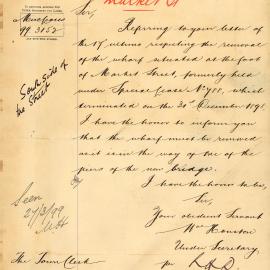 Market St
Miscellaneous
99.3152
South side of
the Street
Sir,
Referring to your letter of
the 17 ultimo respecting the removal
of the wharf situated at the foot
of Market Street, formerly held
under Special Lease No 988, which
terminated on the 31st December 1898
I have the honor to inform you
that the wharf must be removed
as it is in the way of one of the
piers of the new bridge.
I have the honor to be,
Sir,
Your obedient Servant
Wm Houston
Under Secretary
Seen
27/3/99
The Town Clerk
per